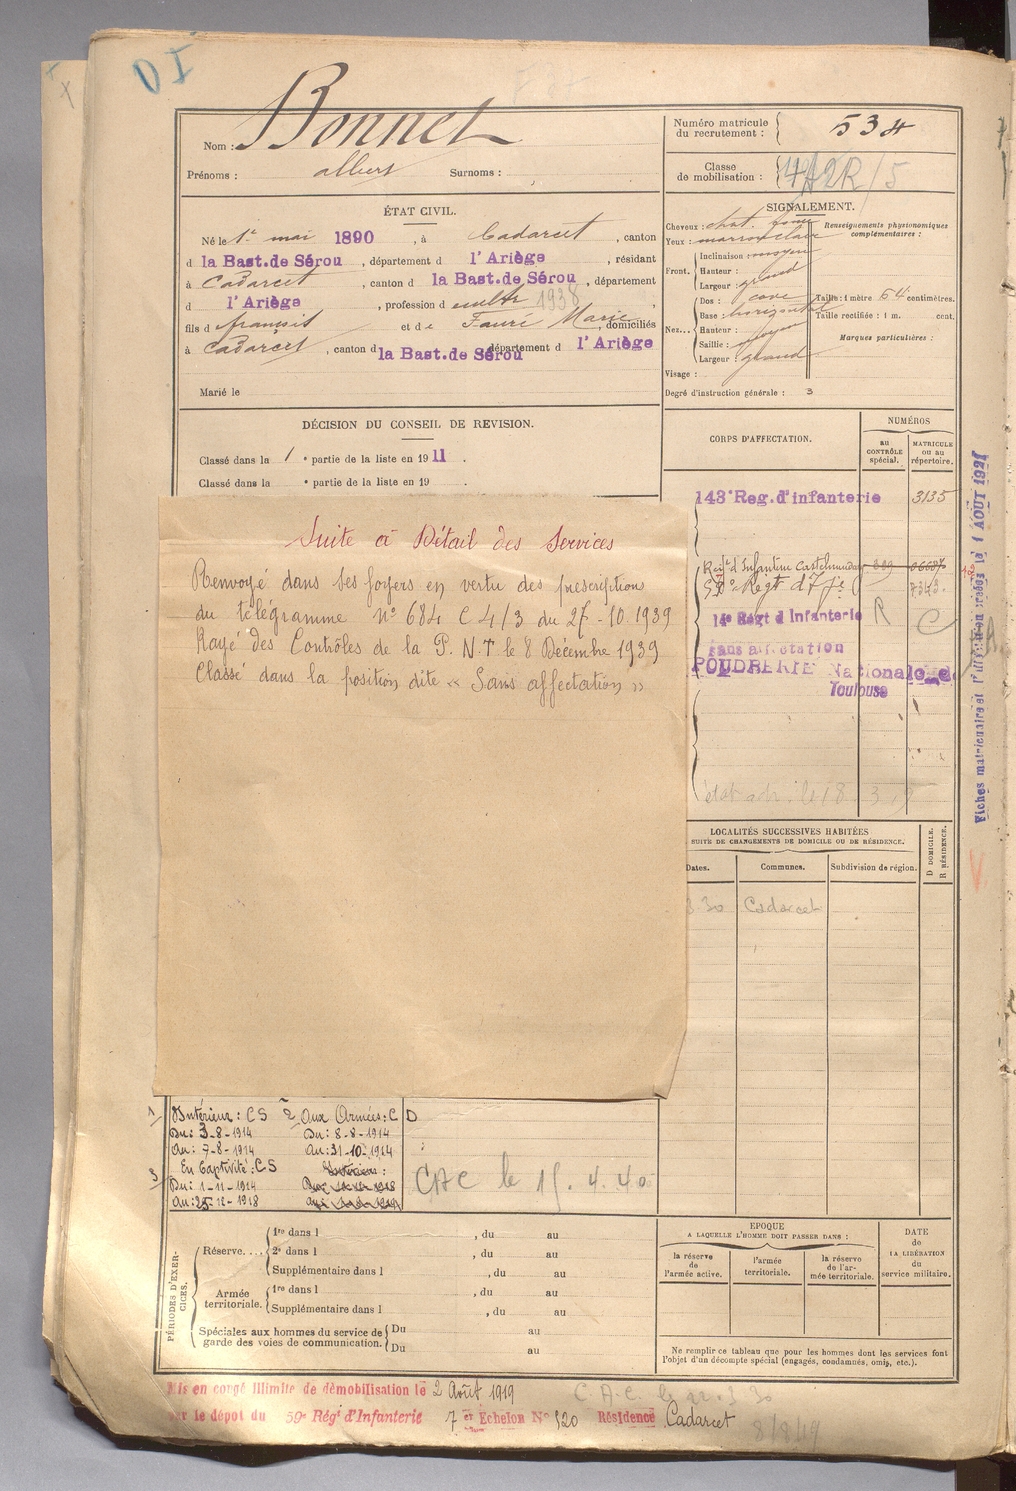 OI
Nom : Bonnet
Prénoms : albert Surnoms :
Numéro matricule du recrutement : 534
Classe de mobilisation :
ÉTAT CIVIL.
Né le 1er mai 1890, à Cadarcet, canton
d la Bast.de Sérou, département d l'Ariège, résidant
à Cadarcet, canton d la Bast.de Sérou, département
d l'Ariège, profession d cultr 1938
fils d françois et de Fauré Marie, domiciliés
à Cadarcet, canton d la Bast.de Sérou département d l'Ariège
Marié le
SIGNALEMENT.
Cheveux : chat. foncé
Yeux : marron clair
Front. Inclinaison : moyen
Hauteur :
Largeur : grand
Nez... Dos : cave
Base : horizontal
Hauteur :
Saillie : moyen
Largeur : grand
Visage :
Degré d'instruction générale : 3
Renseignements physionomiques complémentaires :
Taille : 1 mètre 64 centimètres.
Taille rectifiée : 1 m. cent.
Marques particulières :
DÉCISION DU CONSEIL DE REVISION.
Classé dans la 1 e partie de la liste en 1911.
Classé dans la e partie de la liste en 19 .
CORPS D'AFFECTATION.
NUMÉROS
au contrôle spécial.
MATRICULE ou au répertoire.
143e Reg. d'infanterie 3135
Regt d'Infanterie Castelnaudary
Régt d'Infie
14e Régt d'Infanterie R C
sans affectation
POUDRERIE Nationale de
Toulouse
Suite à Détail des Services
Renvoyé dans ses foyers en vertu des prescriptions
du télégramme n° 684 C 4/3 du 27-10.1939
Rayé des Contrôles de la P.N.T le 8 Décembre 1939
Classé dans la position dite « Sans affectation »
Fiches matriculaire et d'utilisation créées le 1 AOUT 1921
LOCALITÉS SUCCESSIVES HABITÉES
SUITE DE CHANGEMENTS DE DOMICILE OU DE RÉSIDENCE.
Dates. Communes. Subdivision de région. D DOMICILE. R RÉSIDENCE.
3 30 Cadarcet
1 Intérieur : CS 2 Aux Armées : CD
Du : 3-8-1914 Du : 8-8-1914
Au : 7-8-1914 Au : 31-10-1914
3 En Captivité : CS Intérieur :
Du : 1-11-1914
Au : 25-12-1918
CAC le 15.4.40
PÉRIODES D'EXERCICES.
Réserve.... 1re dans l , du au
2e dans l , du au
Supplémentaire dans l , du au
Armée territoriale. 1re dans l , du au
Supplémentaire dans l , du au
Spéciales aux hommes du service de garde des voies de communication. Du au
Du au
EPOQUE
A LAQUELLE L'HOMME DOIT PASSER DANS :
la réserve de l'armée active.
l'armée territoriale.
la réserve de l'armée territoriale.
DATE de LA LIBÉRATION du service militaire.
Ne remplir ce tableau que pour les hommes dont les services font
l'objet d'un décompte spécial (engagés, condamnés, omis, etc.).
Mis en congé illimité de démobilisation le 2 Août 1919
par le dépôt du 59e Régt d'Infanterie 7er Echelon N° 520 Résidence Cadarcet
8/8/19